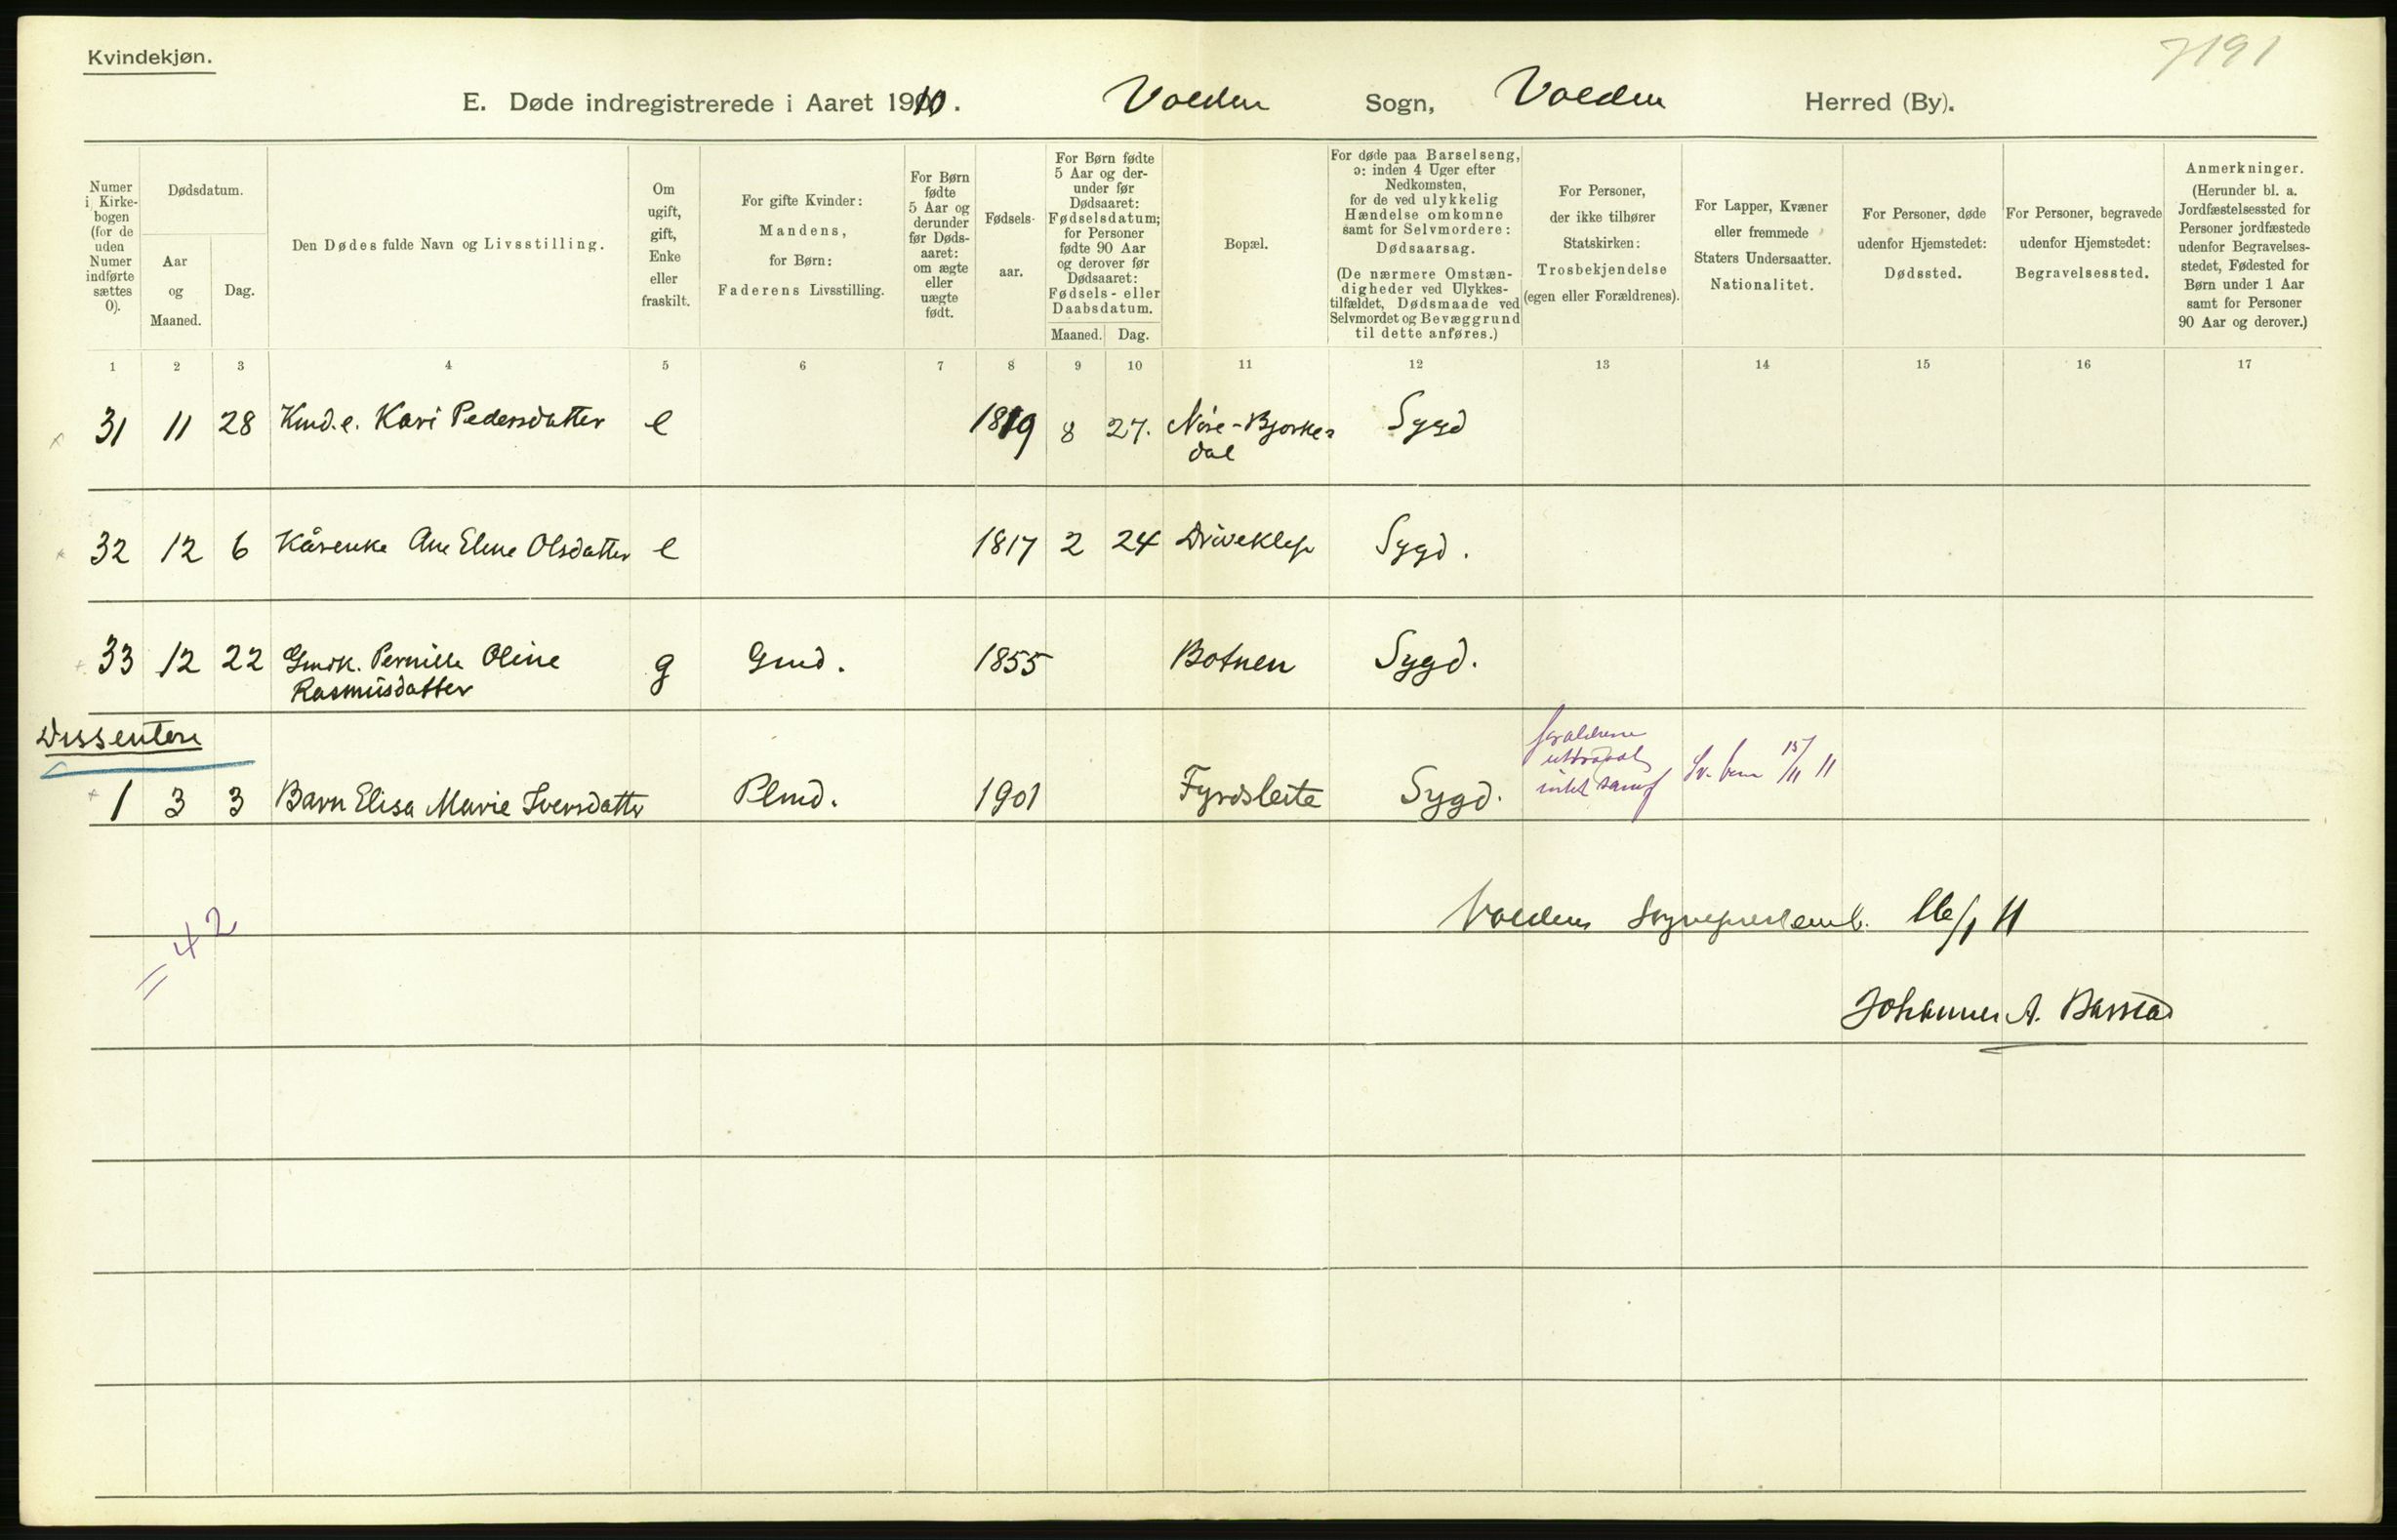 Kvindekjøn.
7191
E. Døde indregistrerede i Aaret 1910. Volden Sogn, Volden Herred (By).
Numer
i Kirke-
bogen
(for de
uden
Numer
indførte
sættes
0).
Dødsdatum.
Aar
og
Maaned.
Dag.
Den Dødes fulde Navn og Livsstilling.
Om
ugift,
gift,
Enke
eller
fraskilt.
For gifte Kvinder:
Mandens,
for Børn:
Faderens Livsstilling.
For Børn
fødte
5 Aar og
derunder
før Døds-
aaret:
om ægte
eller
uægte
født.
Fødsels-
aar.
For Børn fødte
5 Aar og der-
under før
Dødsaaret:
Fødselsdatum;
for Personer
fødte 90 Aar
og derover før
Dødsaaret:
Fødsels- eller
Daabsdatum.
Maaned. Dag.
Bopæl.
For døde paa Barselseng,
ɔ: inden 4 Uger efter
Nedkomsten,
for de ved ulykkelig
Hændelse omkomne
samt for Selvmordere:
Dødsaarsag.
(De nærmere Omstæn-
digheder ved Ulykkes-
tilfældet, Dødsmaade ved
Selvmordet og Bevæggrund
til dette anføres.)
For Personer,
der ikke tilhører
Statskirken:
Trosbekjendelse
(egen eller Forældrenes).
For Lapper, Kvæner
eller fremmede
Staters Undersaatter.
Nationalitet.
For Personer, døde
udenfor Hjemstedet:
Dødssted.
For Personer, begravede
udenfor Hjemstedet:
Begravelsessted.
Anmerkninger.
(Herunder bl. a.
Jordfæstelsessted for
Personer jordfæstede
udenfor Begravelses-
stedet, Fødested for
Børn under 1 Aar
samt for Personer
90 Aar og derover.)
1 2 3 4 5 6 7 8 9 10 11 12 13 14 15 16 17
31 11 28 Kmd.e. Kari Pedersdatter e 1819 8 27. Nore-Bjorke-
dal Sygd
32 12 6 Kårenke Ane Eline Olsdatter e 1817 2 24 Driveklep Sygd.
33 12 22 Gmdk. Pernille Oline
Rasmusdatter g Gmd. 1855 Botnen Sygd.
Dissentere
1 3 3 Barn Elisa Marie Iversdatter Plmd. 1901 Fyrdsleite Sygd.
15/11 11
= 42
Voldens Sogneprestemb. 16/1 11
Johannes A. Barstad